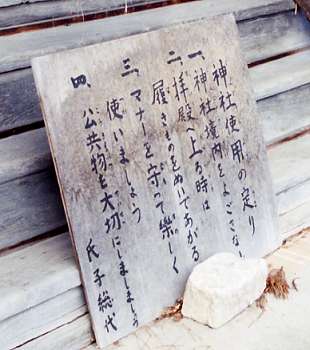 神社使用の定り
一、神社境内をよごさない
二、拝殿へ上る時は
履きものをぬいであがる
三、マナーを守って楽しく
使いましょう
四、公共物を大切にしましょう
氏子総代